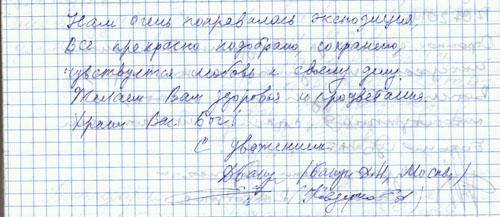 Нам очень понравилась экспозиция.
Все прекрасно подобрано, сохранено,
чувствуется любовь к своему делу.
Желаем Вам здоровья и процветания.
Храни Вас Бог!
С уважением
Москва